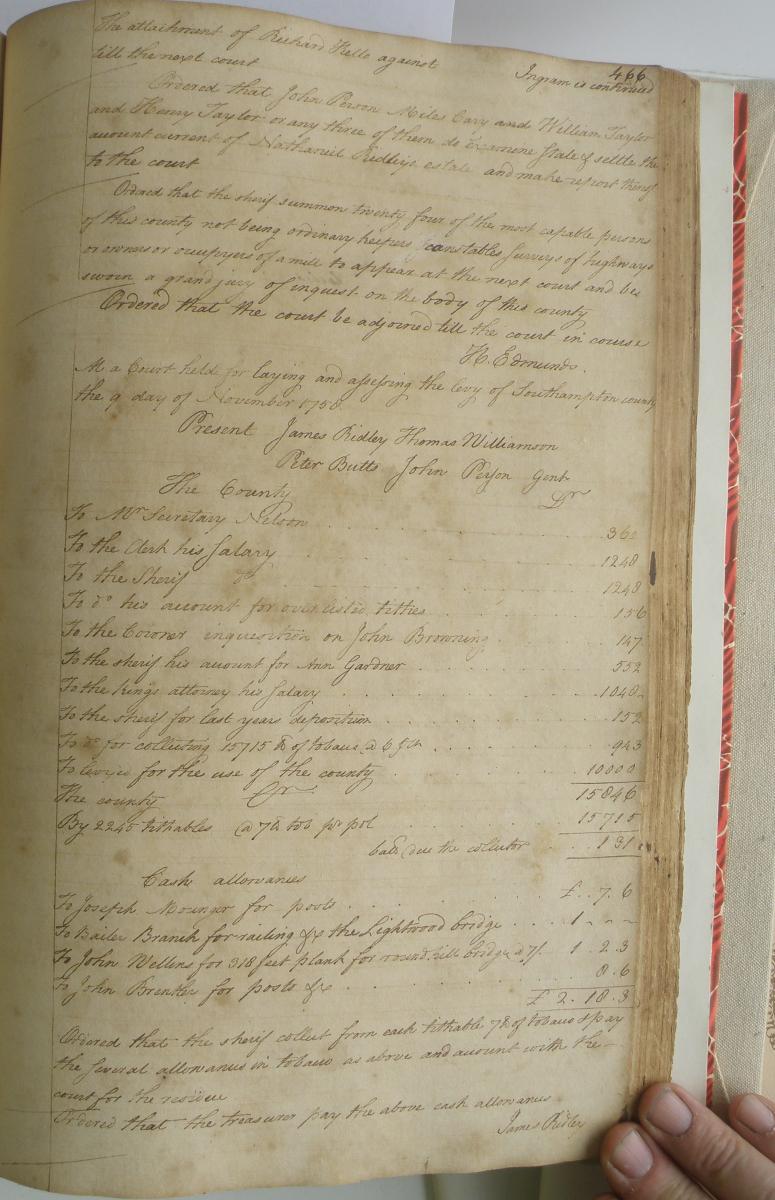 466
The attachment of Richard Kello against Ingram is continued
till the next court
Ordered that John Person Miles Cary and William Taylor
and Henry Taylor or any three of them do Examine State & settle the
account current of Nathaniel Ridleys estate and make report thereof
to the court
Ordered that the sherif summon twenty four of the most capable persons
of this county not being ordinary keepers constables surveys of highways
or owners or occupyers of a mill to appear at the next court and be
sworn a grand jury of inquest on the body of this county
Ordered that the court be adjorned till the court in course
H. Edmunds.
At a Court held for laying and assessing the levy of Southampton county
the 9 day of November
Present James Ridley Thomas Williamson
Peter Butts John Person Gent
The County Dr
To Mr Secretary Nelson 360
To the Clerk his Salary 1248
To the Sherif do 1248
To do his account for overlisted tithes 156
To the Coroner inquesition on John Browning 147
To the sherif his account for Ann Gardner 552
To the kings attorney his salary 1040
To the sherif for last years deposition 152
To do for collecting 15715 lb of tobacco @ 6 943
To levyed for the use of the county 10000
15846
The county Cr
By 2245 tithables @ 7lb tob pr pol 15715
balc due the collector 131
Cash allowances
To Joseph Mounger for posts £ . . 7. 6
To Bailes Branch for railing &c the Lightwood bridge 1 - - -
To John Wellens for 318 feet plank for round hill bridge @ 7/ 1. 2. 3
To John for posts &c 8. 6
£ 2. 18. 3
Ordered that the sherif collect from each tithable 7lb of tobacco & pay
the several allowances in tobacco as above and account with the
court for the residue
Ordered that the treasurer pay the above cash allowances
James Ridley